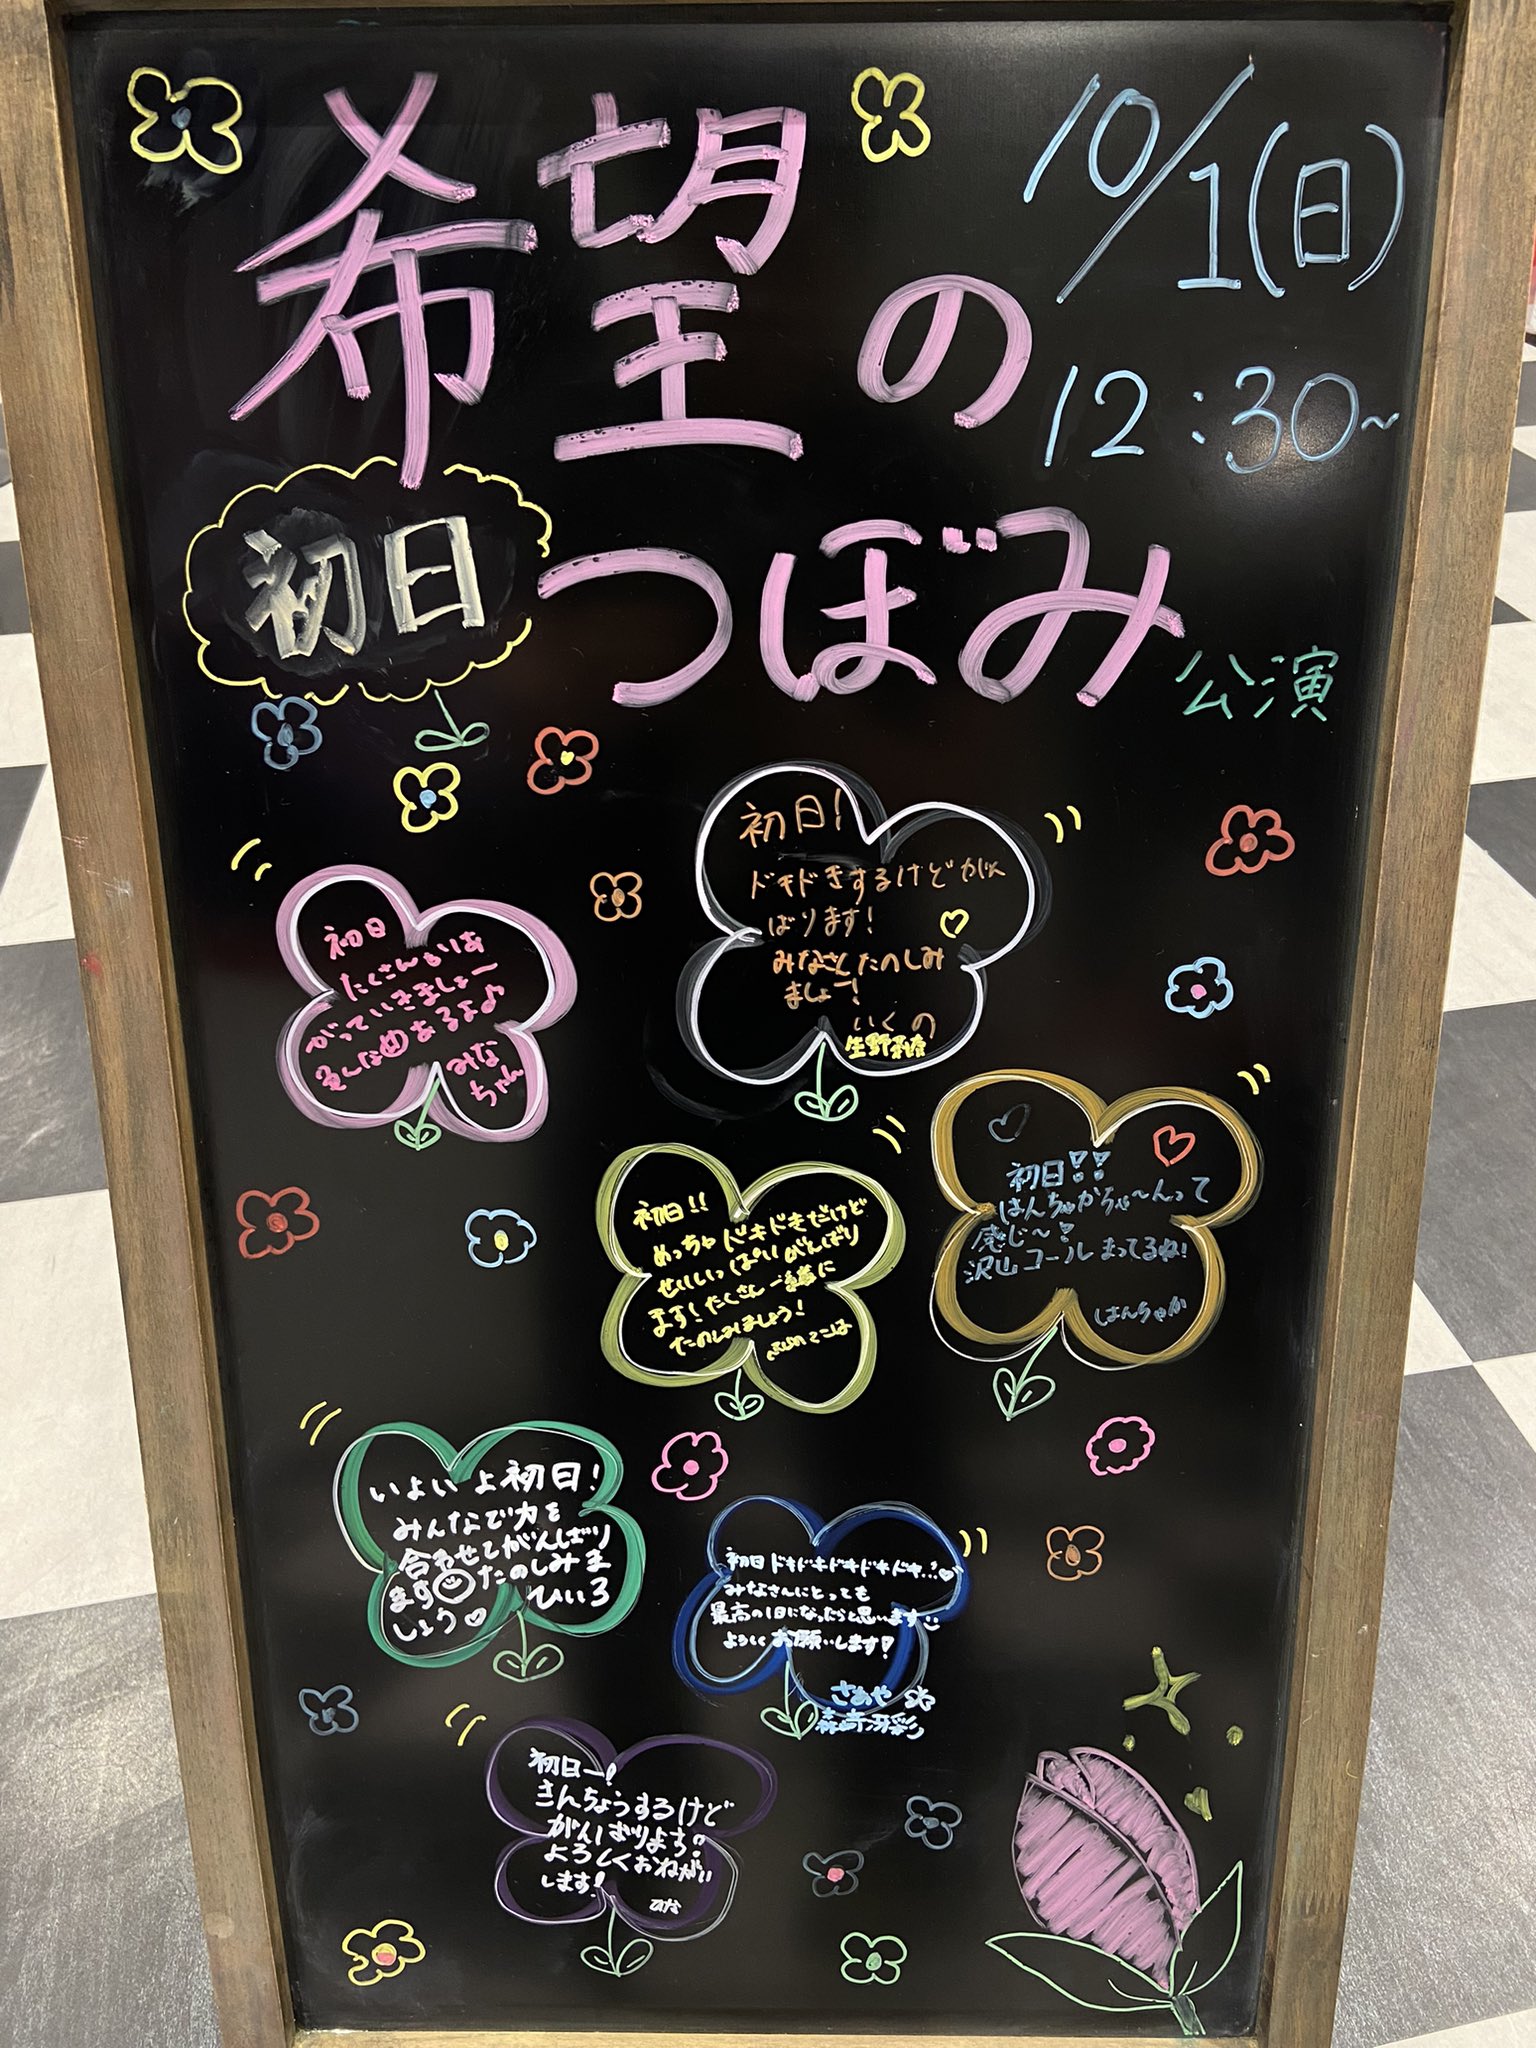 希望の
つぼみ
公演
10/1(日)
12:30~
初日
初日!
ドキドキするけどがん
ばります!
みなさんたのしみ
ましょー!
いくの
生野莉奈
初日
たくさんもりあ
がっていきましょー
曲あるよ♪
みな
ちゃん
初日!!
はんちゅかちゃ〜んって
感じ〜!
沢山コールまってるね!
はんちゅか
初日!!
めっちゃドキドキだけど
せいいっぱいがんばり
ます!たくさん一緒に
たのしみましょう!
ふじの こころ
いよいよ初日!
みんなで力を
合わせてがんばり
ます たのしみま
しょう♡ ひいろ
初日ドキドキドキドキドキ...!♡
みなさんにとっても
最高の1日になったらと思います
よろしくお願いします!
さあや
森崎冴彩
初日ー!
きんちょうするけど
がんばります!
よろしくおねがい
します!
ひな